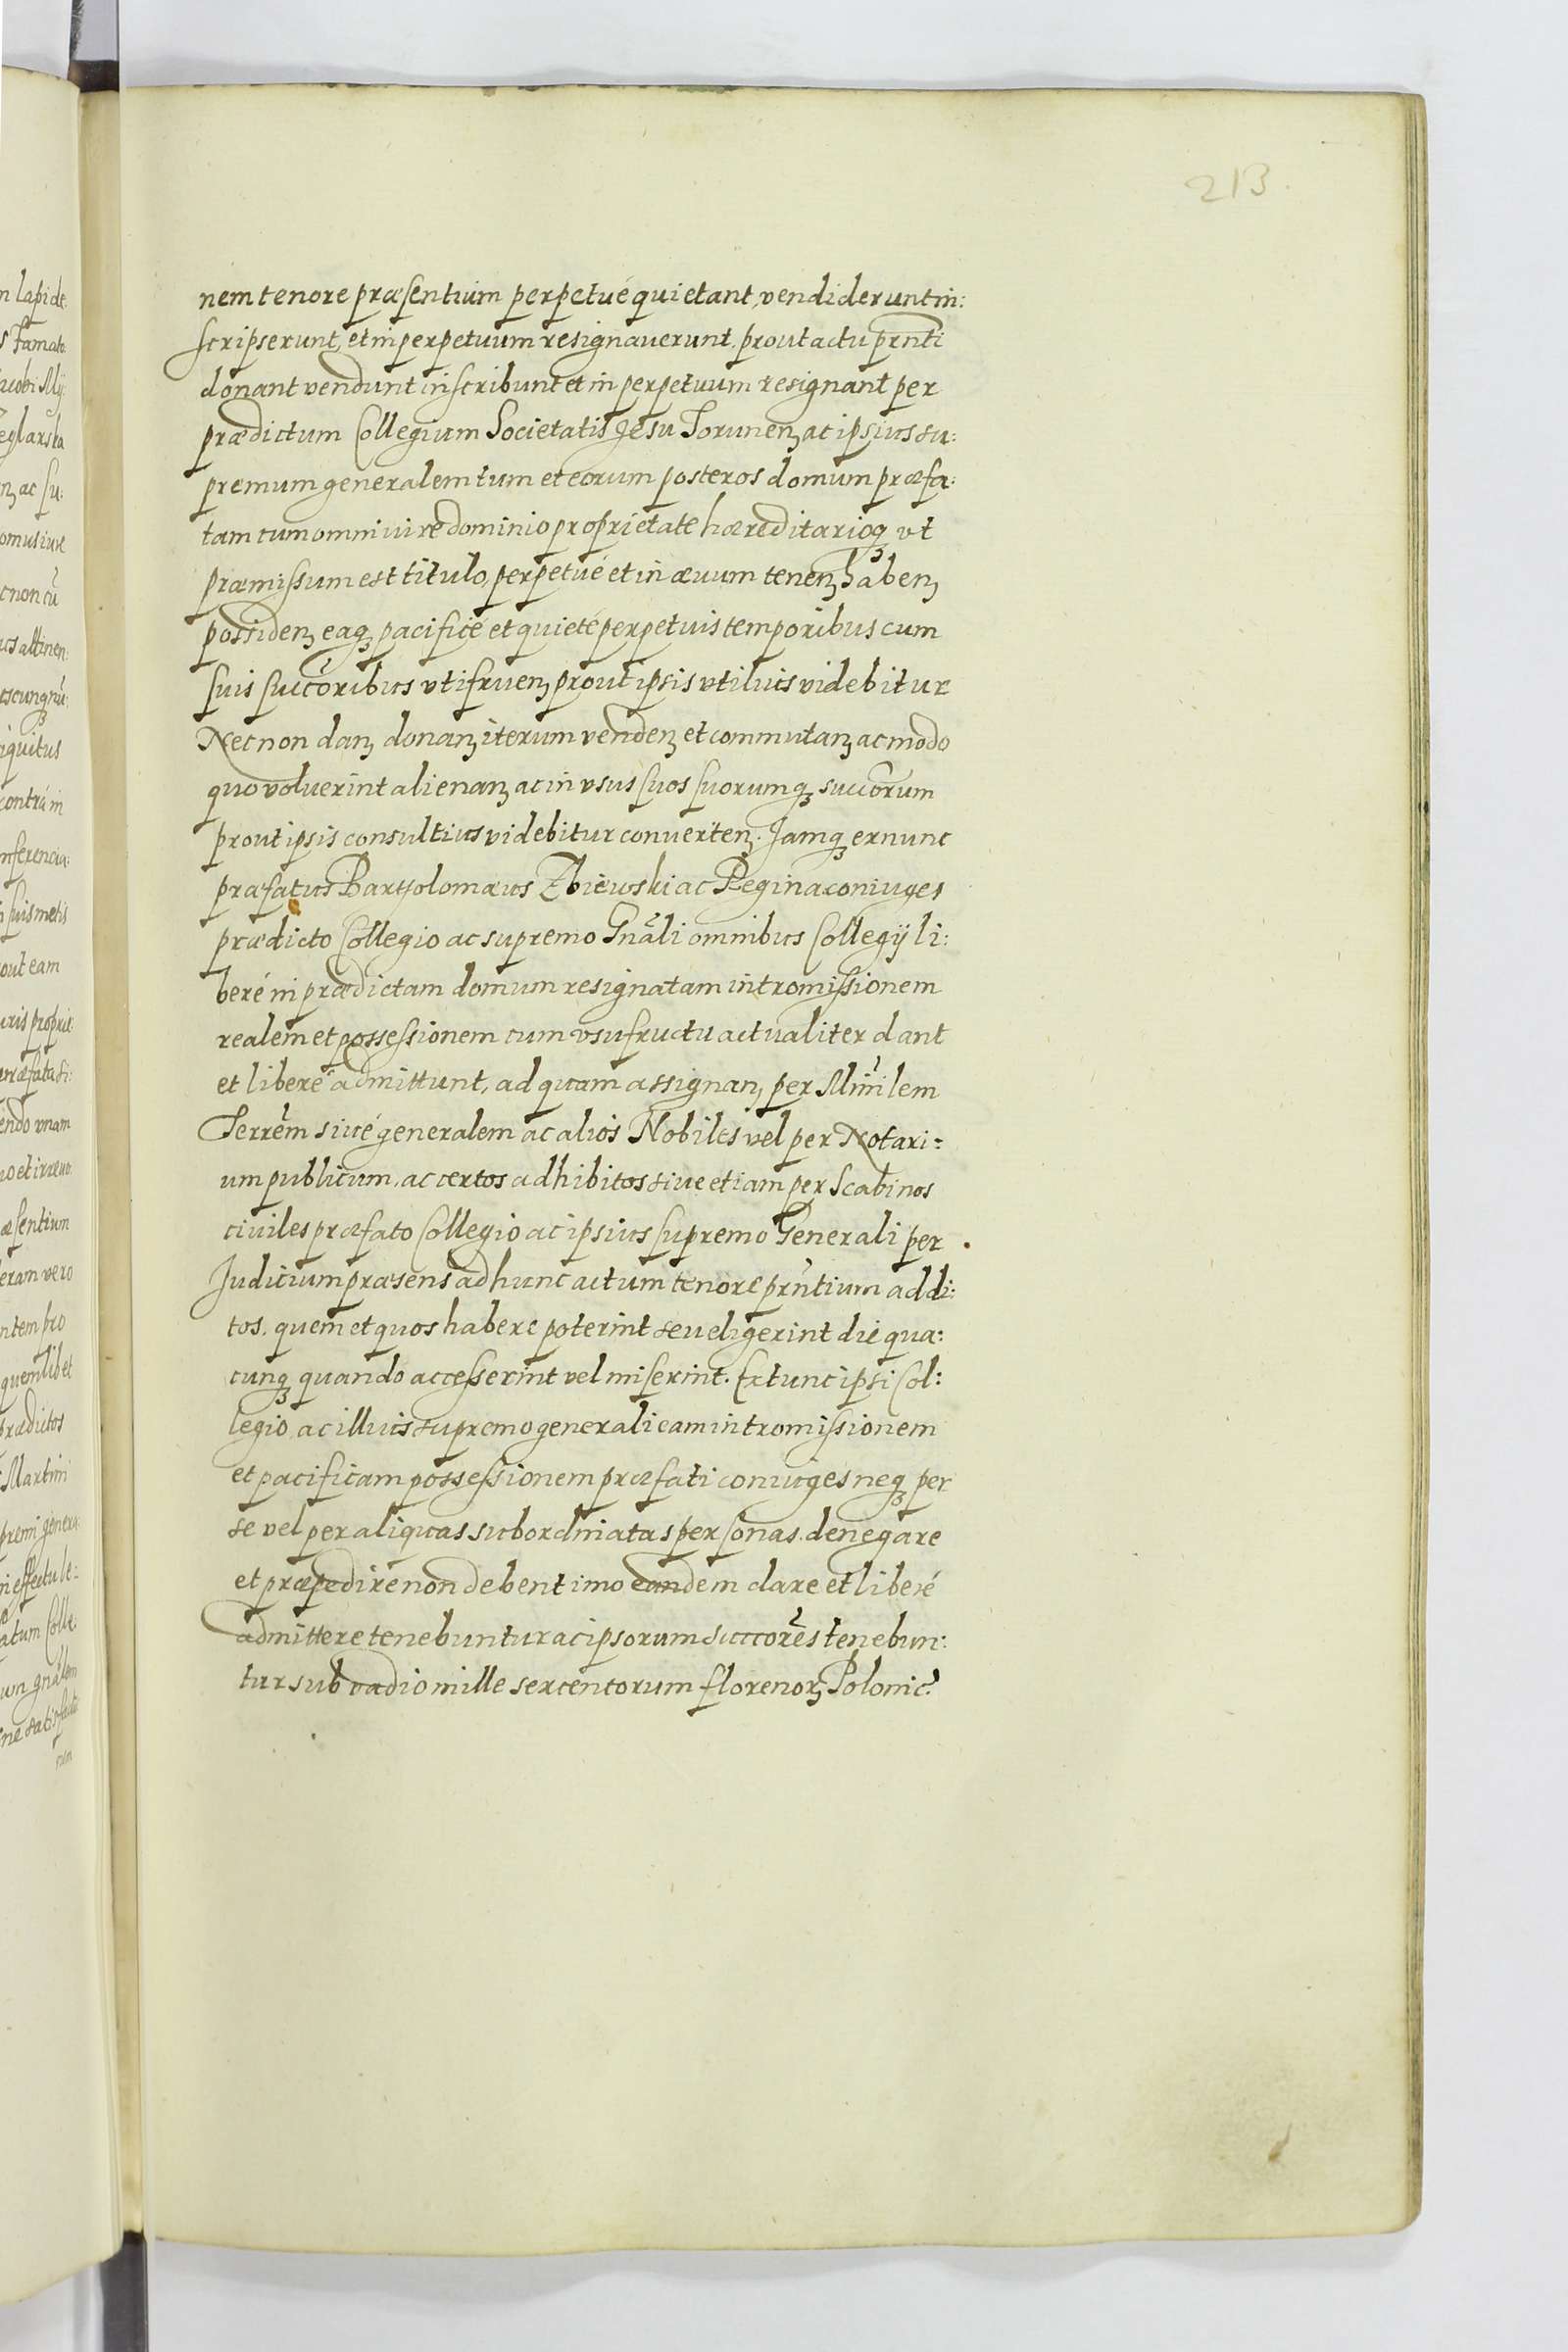 213.
nem tenore præsentium perpetué quietant, vendiderunt in:
scripserunt, et in perpetuum resignaverunt. prout actu prnti
donant vendunt inscribunt et in perpetuum resignant per
prædictum Collegium Societatis Jesu Torunenꝫ ac ipsius su:
premum generalem tum et eorum posteros domum præfa:
tam cum omni iure dominio proprietate hæreditarioqꝫ vt
præmissum est titulo, perpetué et in ævum tenenꝫ habenꝫ
possidenꝫ eaqꝫ pacificé et quieté perpetuis temporibus cum
suis succoribus vti fruenꝫ prout ipsis vtilius videbitur
Necnon danꝫ donanꝫ iterum vendenꝫ et commutanꝫ ac modo
quo voluerint alienanꝫ ac in vsus suos suorumqꝫ succorum
prout ipsis consultius videbitur convertenꝫ. Jamqꝫ ex nunc
præfatus Bartholomæus Zbiewski ac Regina coniuges
prædicto Collegio ac supremo Gnâli omnibus Collegÿ li:
beré in prædictam domum resignatam intromissionem
realem et possessionem cum vsufructu actualiter dant
et liberé admittunt, ad quam assignanꝫ per Minilem
Terrêm siué generalem ac alios Nobiles vel per Notari:
um publicum, ac certos adhibitos siue etiam per Scabinos
ciuiles præfato Collegio ac ipsius supremo Generali per
Judicium præsens ad hunc actum tenore prntium addi:
tos, quem et quos habere poterint seu eligerint die qua:
cunqꝫ quando accesserint vel miserint. Extunc ipsi Col:
legio ac illius supremo generali eam intromissionem
et pacificam possessionem præfati coniuges neqꝫ per
se vel per aliquas subordinatas personas denegare
et præpedire non debent imo eandem dare et liberé
admittere tenebuntur ac ipsorum succorês tenebun:
tur sub vadio mille sexcentorum florenorꝫ Polonic.